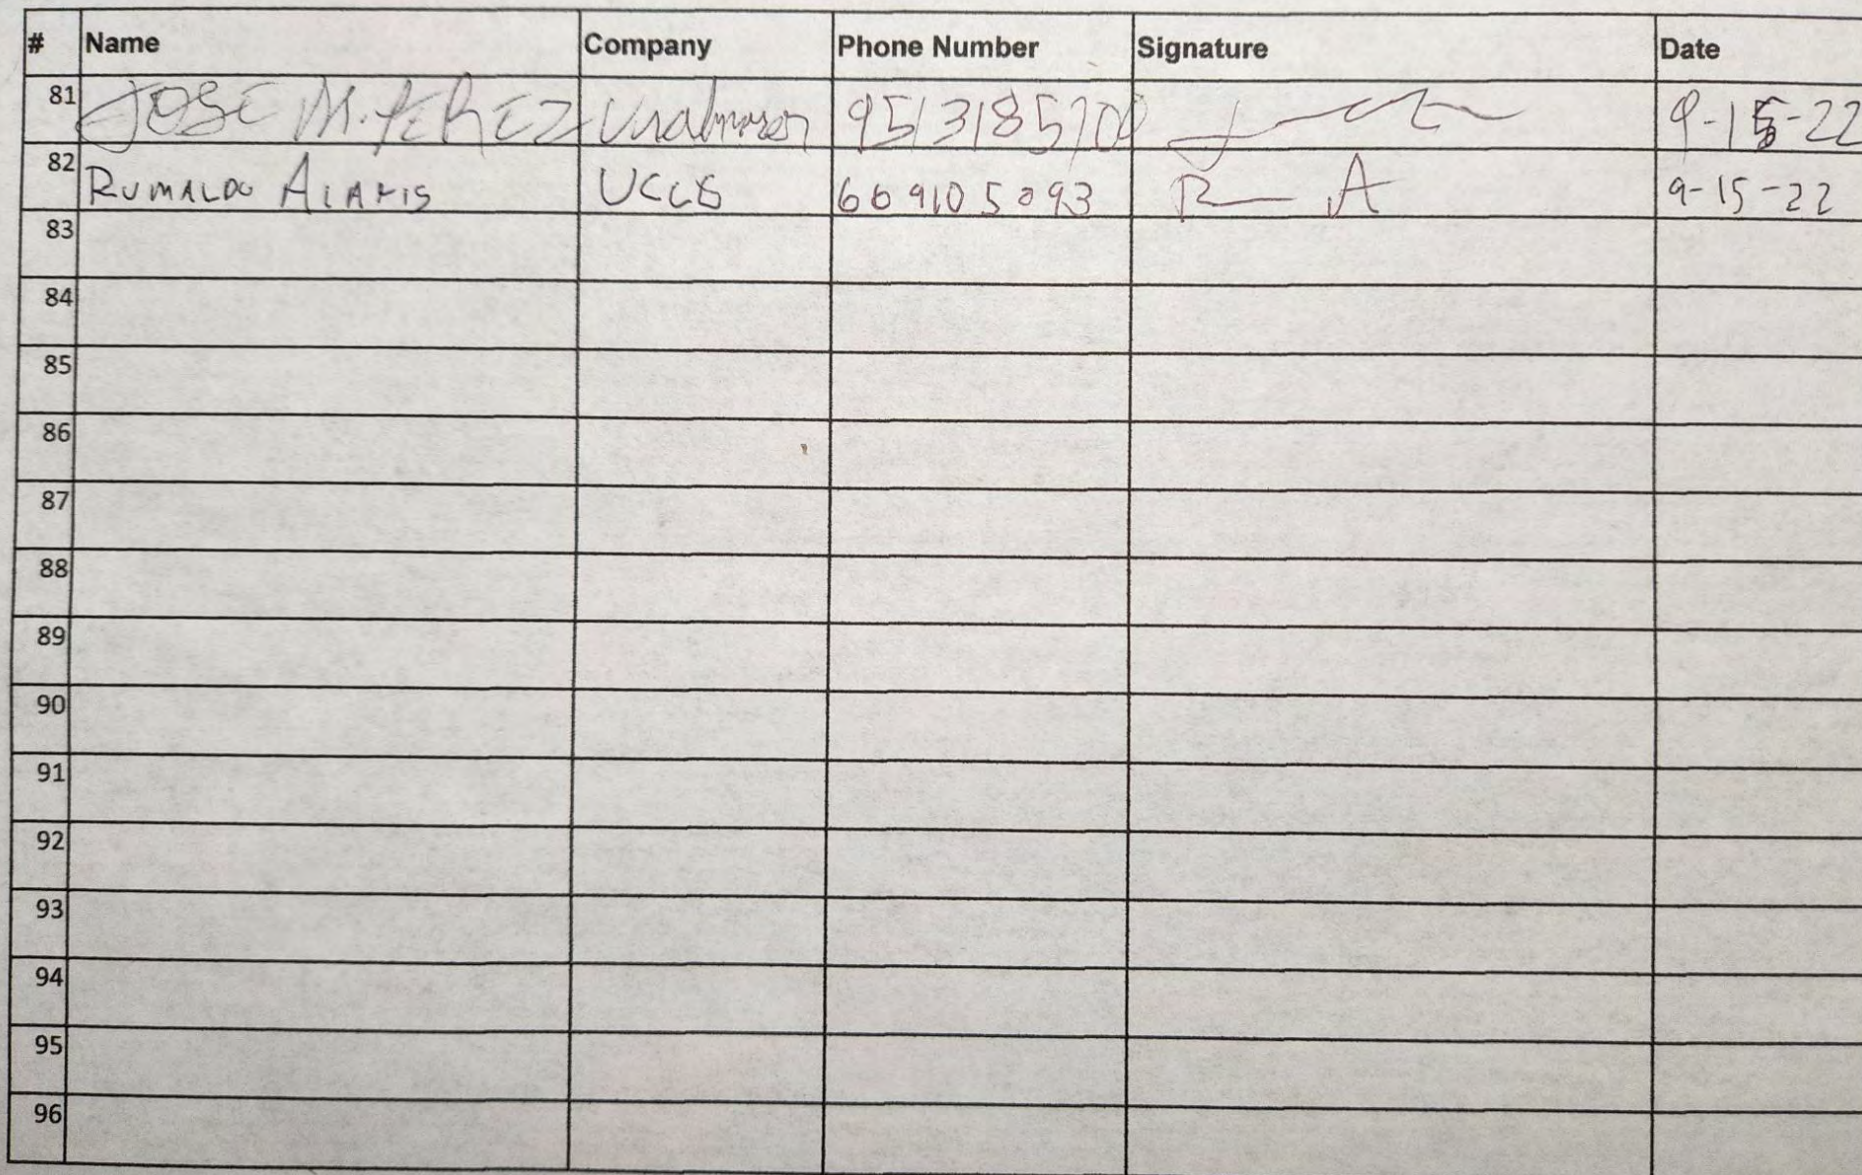 # Name Company Phone Number Signature Date
81 JOSE M. PEREZ 9513185700 9-15-22
82 RUMALDO 6691105093 R A 9-15-22
83
84
85
86
87
88
89
90
91
92
93
94
95
96